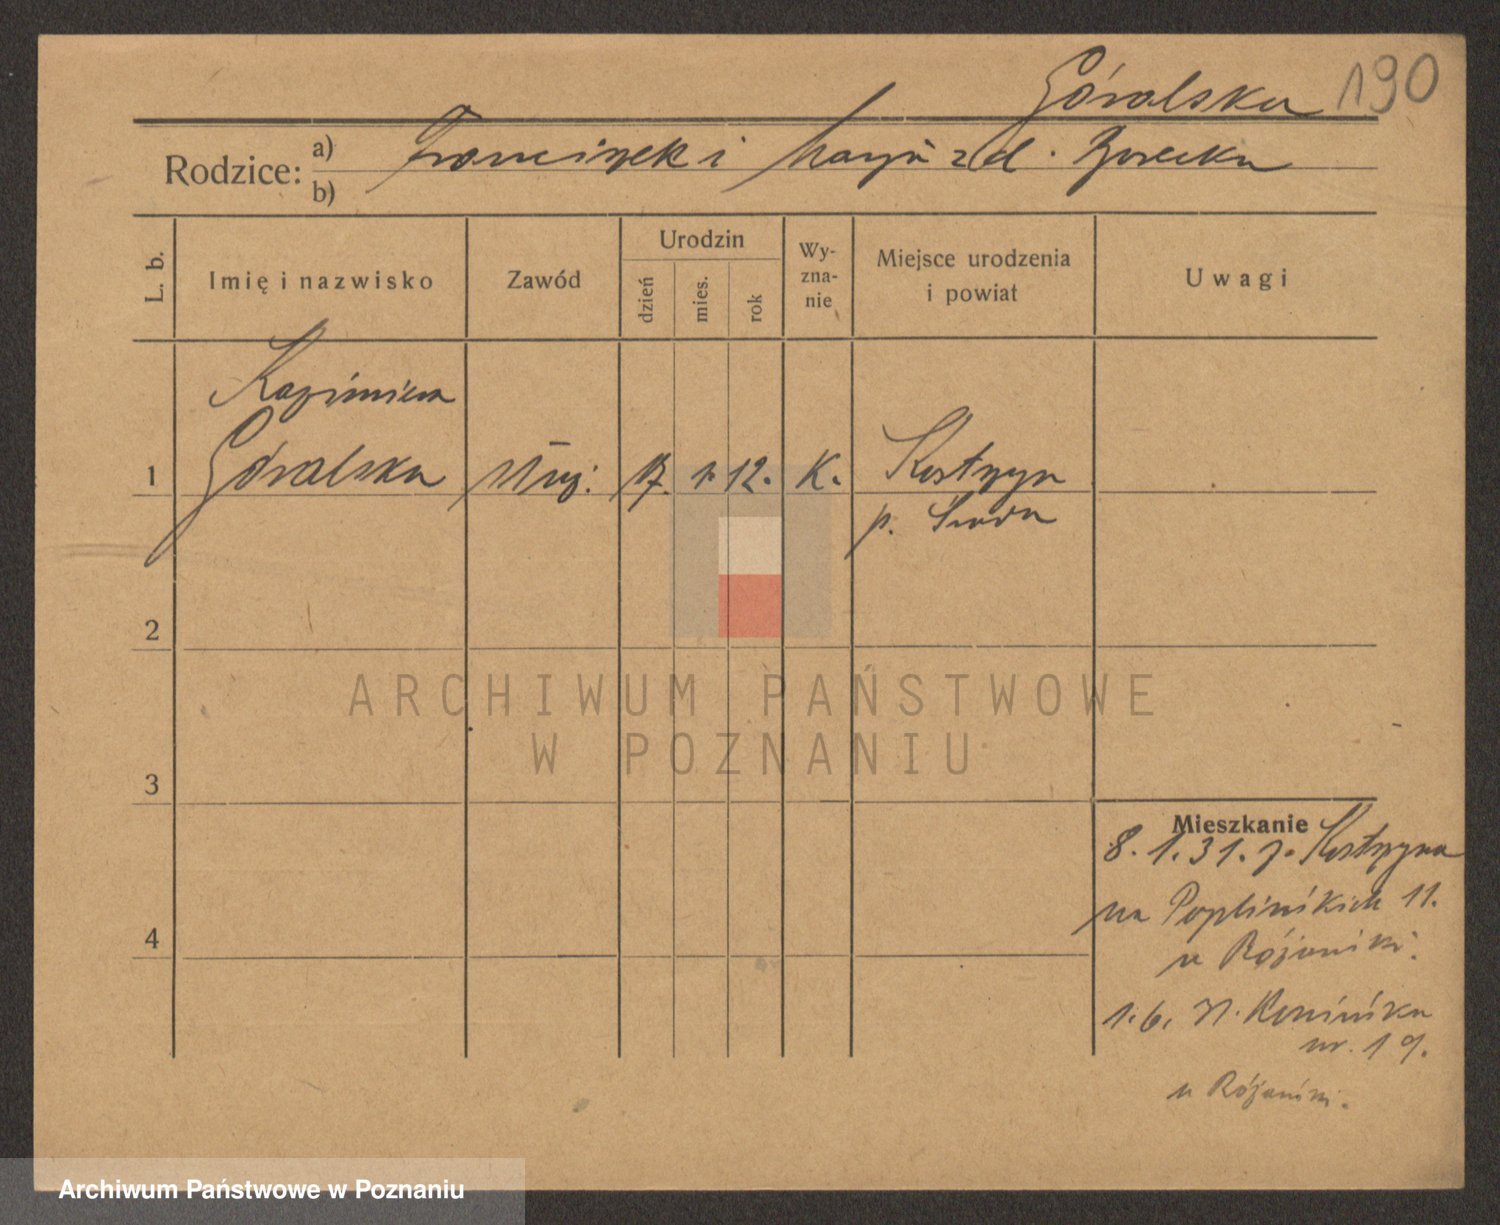 Góralska 190
Rodzice: a) Franciszek i Marja z d.
b)
L. b.
Imię i nazwisko
Zawód
Urodzin
dzień
mies.
rok
Wy-
zna-
nie
Miejsce urodzenia
i powiat
Uwagi
Kazimiera
1 Góralska służ. 17. 1. 12. K. Kostrzyn
p. Środa
2
ARCHIWUM PAŃSTWOWE
W POZNANIU
3
Mieszkanie
8. 1. 31. z Kostrzyna
na Poplińskich 11.
u
4
1. 6. 31. Konińska
nr. 19.
u
Archiwum Państwowe w Poznaniu